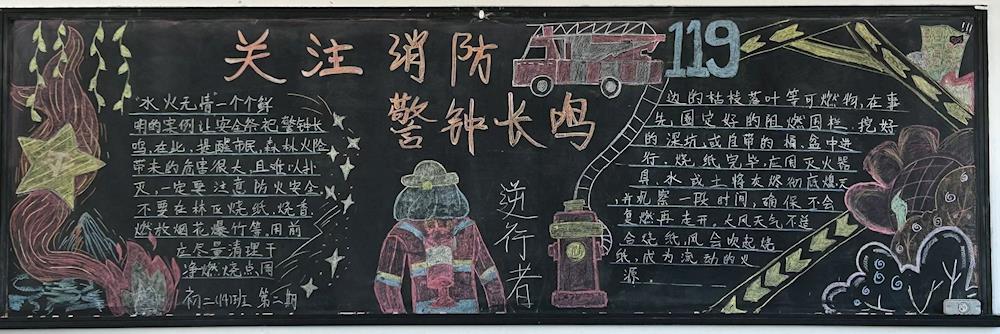 关注消防
警钟长鸣
119
"水火无情"一个个鲜
明的案例让安全祭祀警钟长
鸣,在此,提醒市民,森林火险
带来的危害很大,且难以扑
灭,一定要注意防火安全
不要在林区烧纸、烧香、
燃放烟花爆竹等,用前
应尽量清理干
净燃烧点周
初二(4)班 第二期
逆行者
边的枯枝落叶等可燃物,在事
先围定好的阻燃围栏、挖好
的深坑或自带的桶、盒中进
行,烧纸完毕,应用灭火器
具、水或土将灰烬彻底熄灭
并观察一段时间,确保不会
复燃再走开,大风天气不适
合烧纸,风会吹起烧
纸,成为流动的火
源。